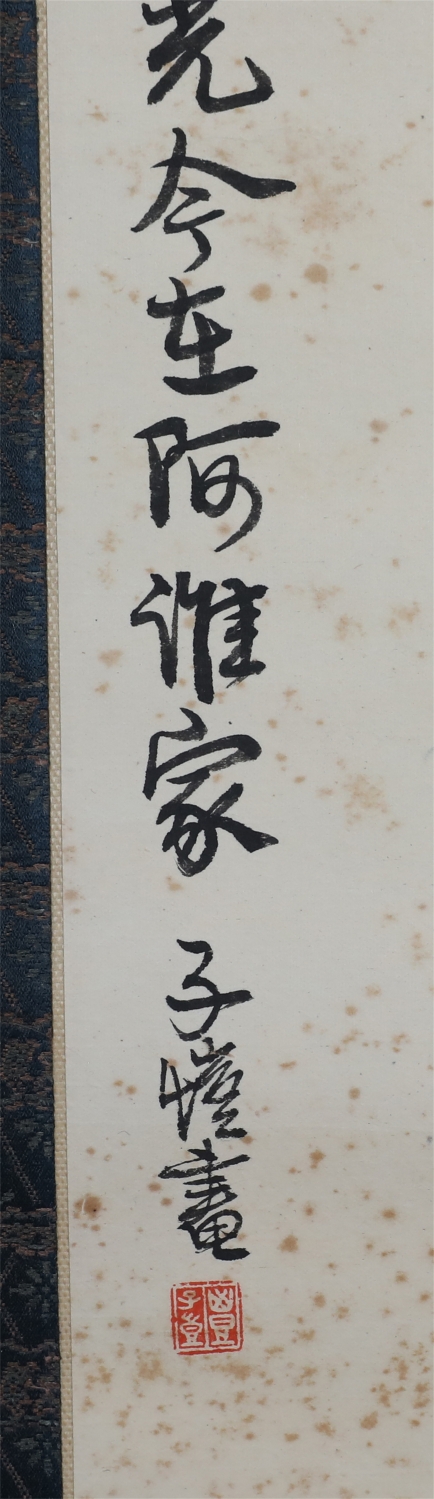 光今在阿誰家 子愷畫
豐子愷